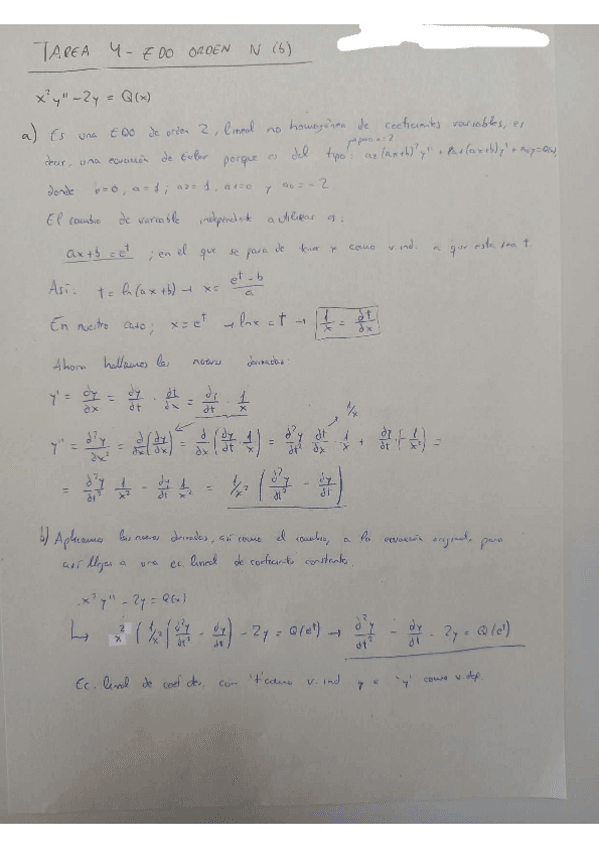 TAREA 4 - EDO ORDEN N (b)
x²y'' - 2y = Q(x)
a) Es una EDO de orden 2, lineal no homogénea de coeficientes variables, es
para n=2
decir, una ecuación de Euler porque es del tipo: a₂(ax+b)²y'' + a₁(ax+b)y' + a₀y = Q(x)
donde b=0, a=1; a₂=1, a₁=0 y a₀=-2
El cambio de variable independiente a utilizar es:
ax+b = eᵗ ; en el que se pasa de tener x como v. ind. a que esta sea t.
Así: t = ln(ax+b) → x = (eᵗ - b)/a
En nuestro caso; x = eᵗ → lnx = t → 1/x = dt/dx
Ahora hallamos las nuevas derivadas:
y' = dy/dx = dy/dt · dt/dx = dy/dt · 1/x
1/x
y'' = d²y/dx² = d/dx (dy/dx) = d/dx (dy/dt · 1/x) = d²y/dt² · dt/dx · 1/x + dy/dt · (-1/x²) =
= d²y/dt² · 1/x² - dy/dt · 1/x² = 1/x² (d²y/dt² - dy/dt)
b) Aplicamos las nuevas derivadas, así como el cambio, a la ecuación original, para
así llegar a una ec. lineal de coeficientes constantes.
x²y'' - 2y = Q(x)
↳ x² (1/x² (d²y/dt² - dy/dt) - 2y = Q(eᵗ) → d²y/dt² - dy/dt - 2y = Q(eᵗ)
Ec. lineal de coef. ctes, con 't' como v. ind y 'y' como v. dep.